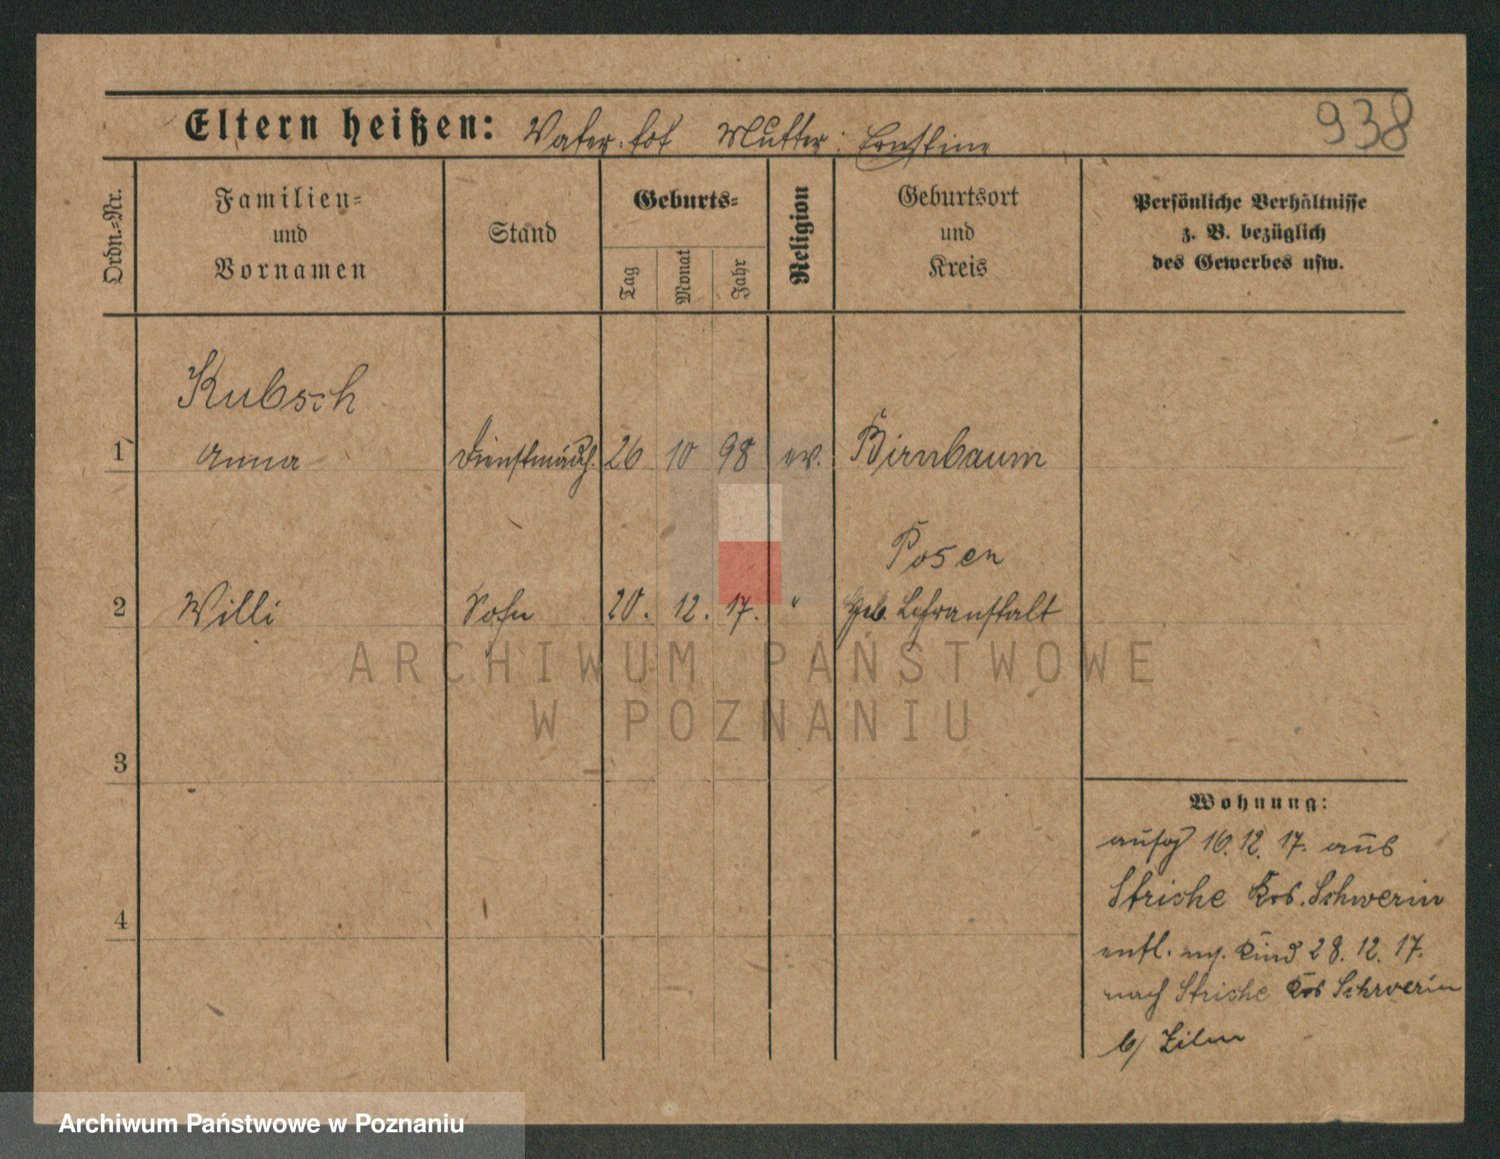 938
Eltern heißen: Vater: tot Mutter: Ernstine
Ordn.-Nr.
Familien-
und
Vornamen
Stand
Geburts-
Tag
Monat
Jahr
Religion
Geburtsort
und
Kreis
Persönliche Verhältnisse
z. B. bezüglich
des Gewerbes usw.
Kubsch
1 Anna Dienstmädch. 26 10 98 ev. Birnbaum
Posen
2 Willi Sohn 20. 12. 17. " Geb. Lehranstalt
3
4
Wohnung:
aufg 16. 12. 17. aus
Striche Krs. Schwerin
entl. m. Kind 28. 12. 17.
nach Striche Krs Schwerin
b/
ARCHIWUM PAŃSTWOWE
W POZNANIU
Archiwum Państwowe w Poznaniu